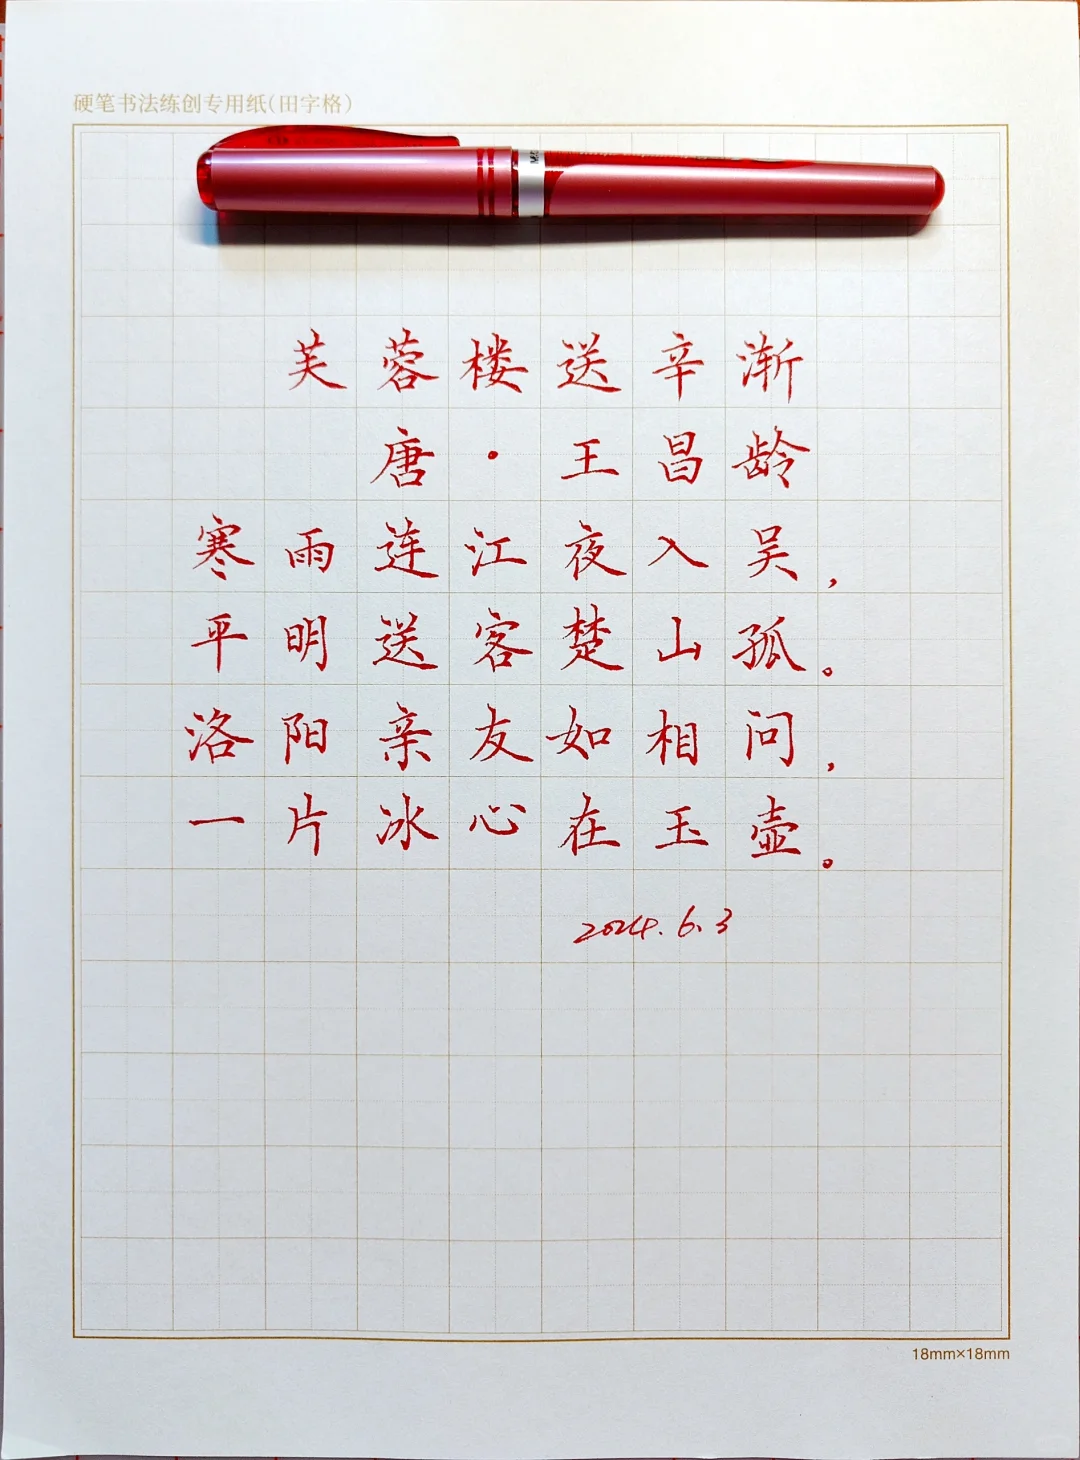 硬笔书法练创专用纸(田字格)
芙蓉楼送辛渐
唐·王昌龄
寒雨连江夜入吴，
平明送客楚山孤。
洛阳亲友如相问，
一片冰心在玉壶。
2024.6.3
18mm×18mm